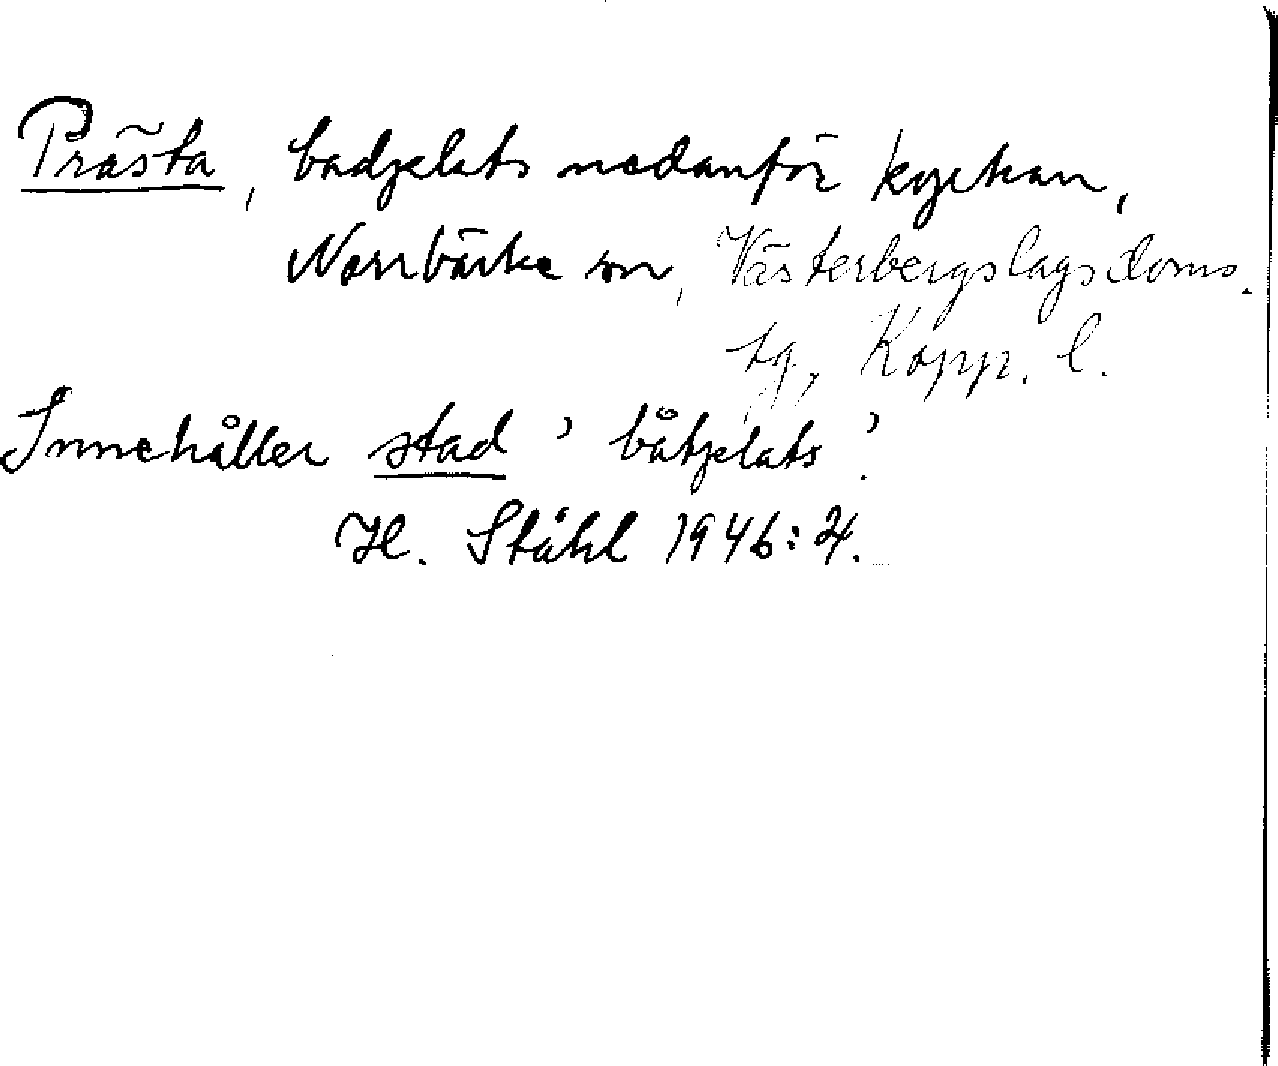 Prästa, badplats nedanför kyrkan,
Norrbärke sn, Västerbergslagsdoms.
tg, Kopp. l.
Innehåller stad 'båtplats'.
H. Ståhl 1946:4.